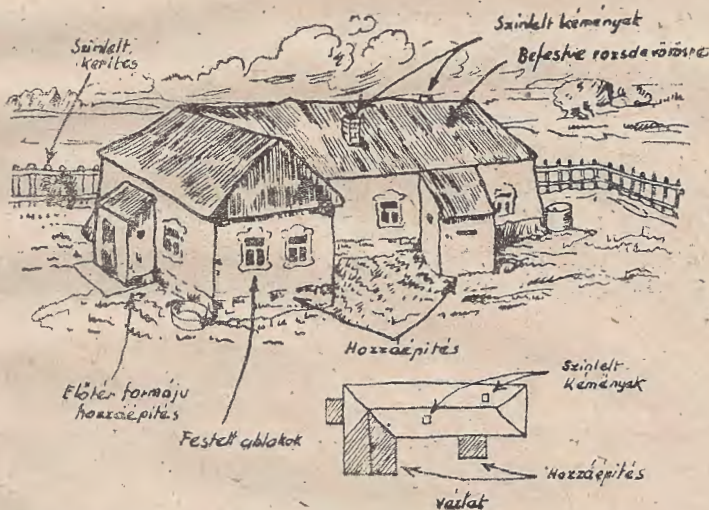 Szinlelt kémények
Szinlelt
kerítés
Befestve rozsdavörösre
Hozzáépítés
Előtér formáju
hozzáépítés
Festett ablakok
Szinlelt
Kémények
Hozzáépítés
vázlat